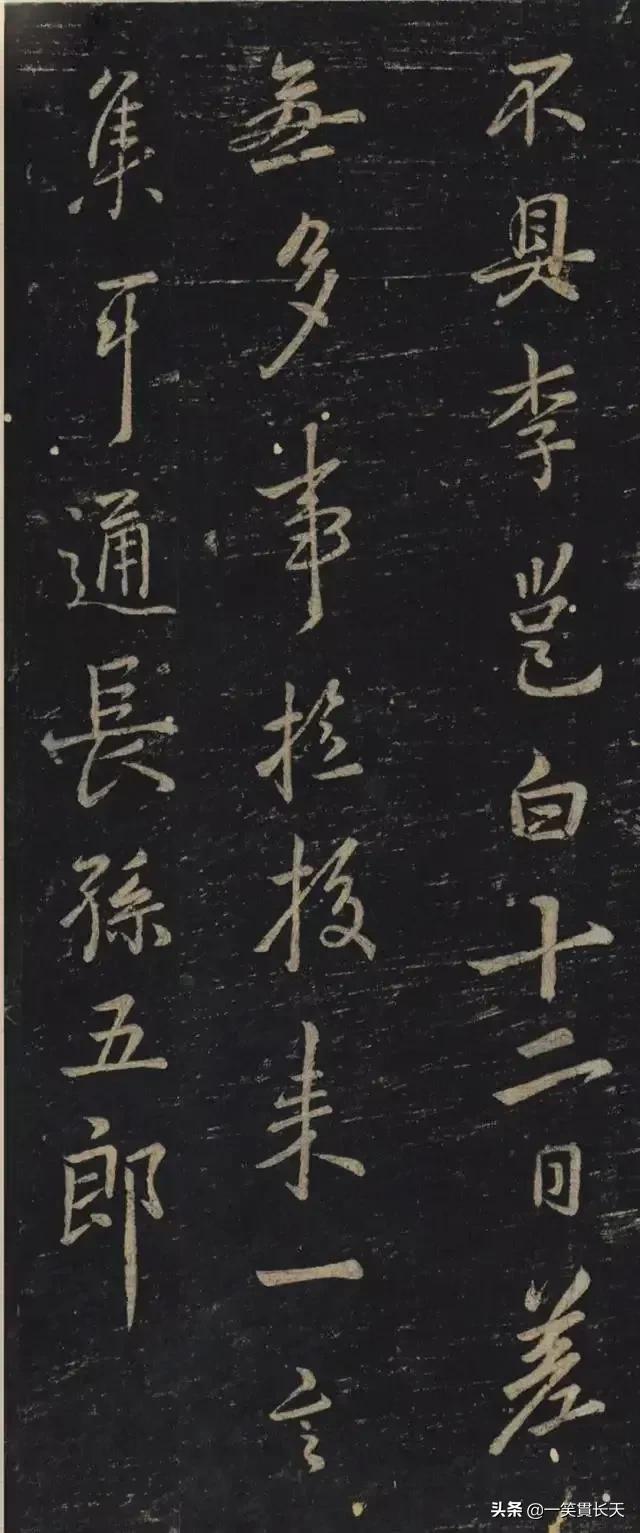 不具李邕白十二日差
無多事捡挍来一言
集耳通長孫五郎
头条 @一笑貫长天